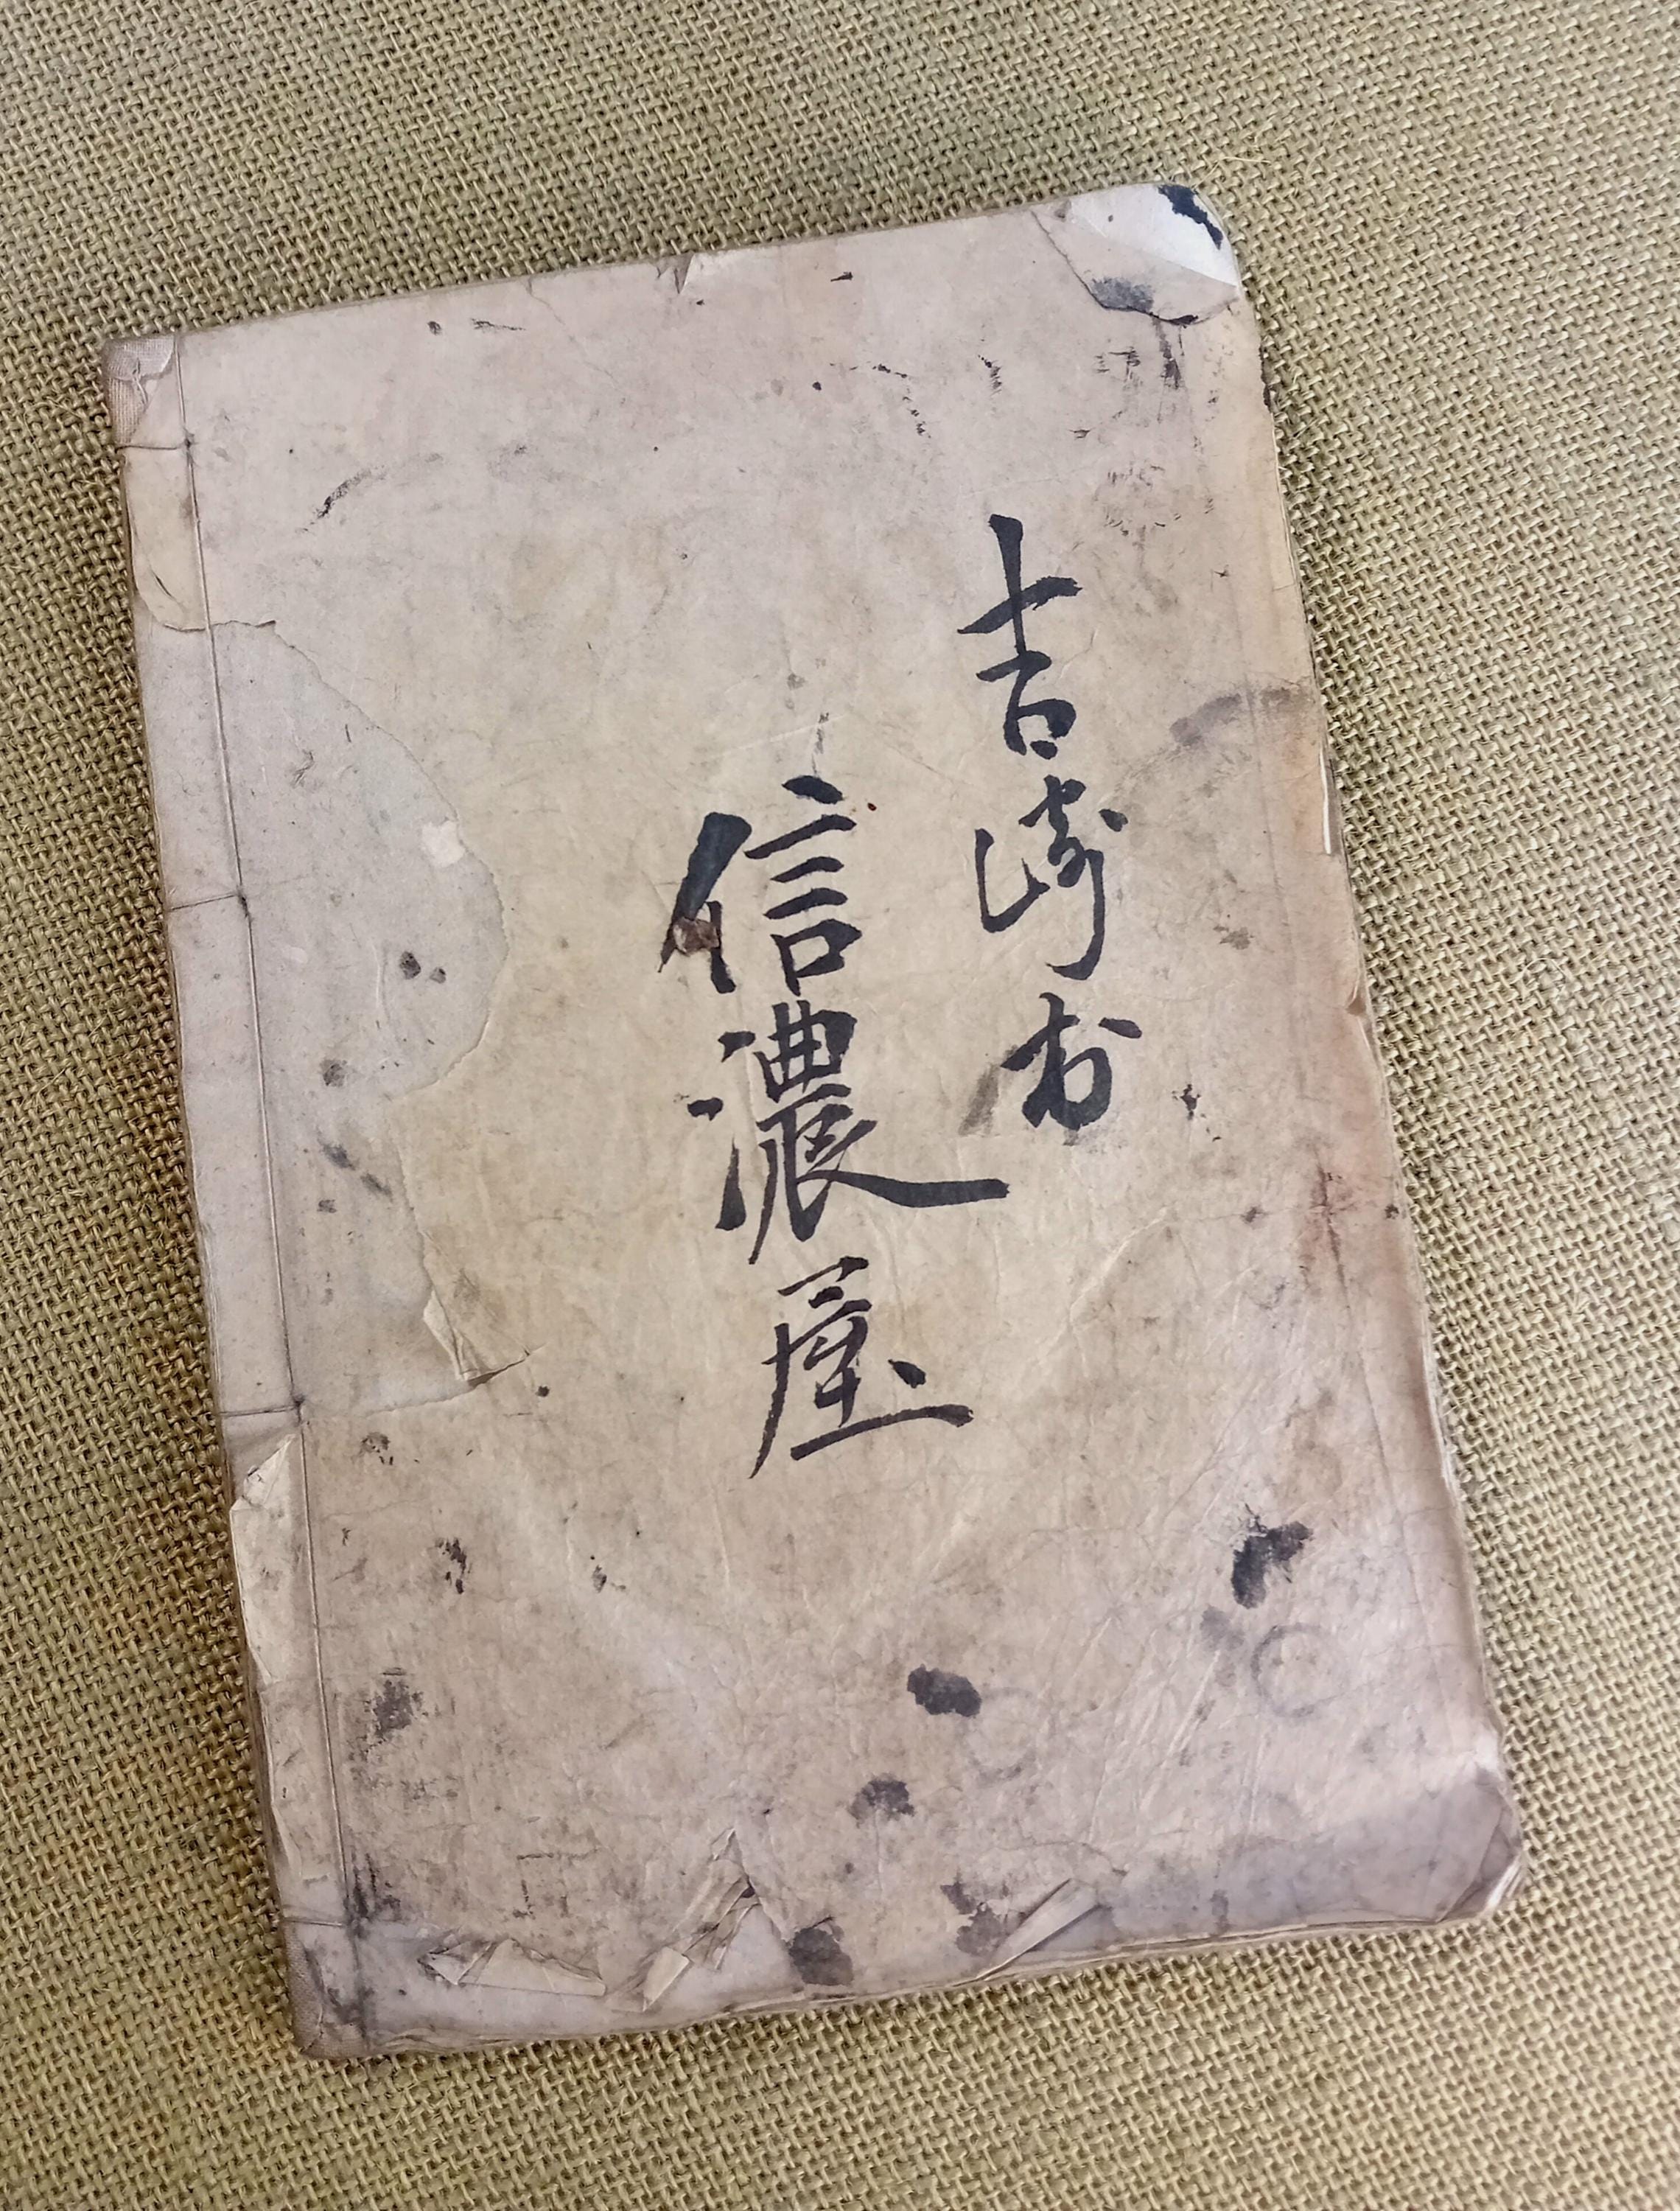 吉崎村
信濃屋